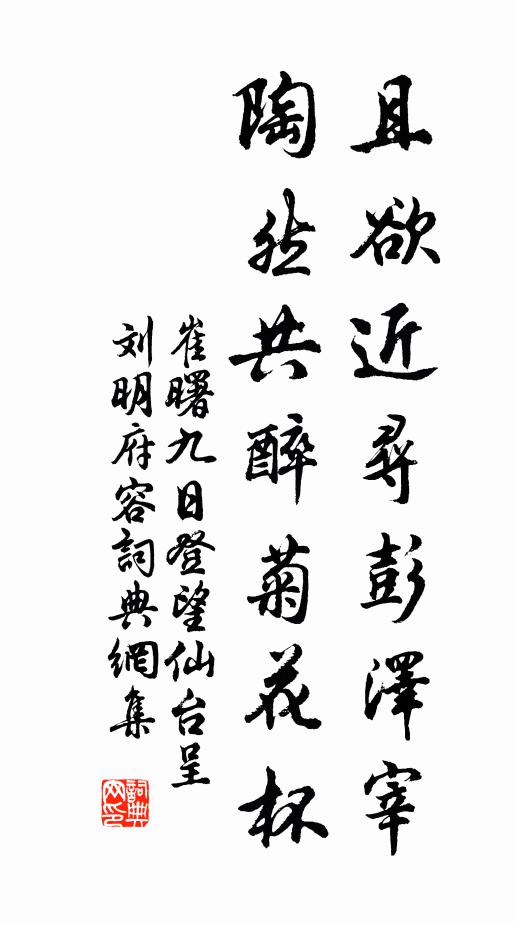 且欲近尋彭澤宰
陶然共醉菊花杯
崔曙九日登望仙台呈
刘明府容詞典網集
詞典网印